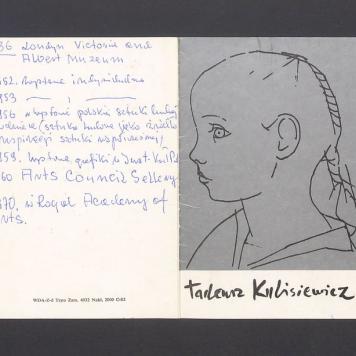 36 Londyn Victoria and
Albert Muzeum
1952. Wystawa indywidualna
1953
1956 wystawa polskiej sztuki ludo
(sztuka ludowa jako źródło
inspiracji sztuki współczesnej)
1958. Wystawa grafiki w Inst. Kult. Pol
60 Arts Council Gallery
1970. w Royal Academy of
Arts.
WDA-Z-d Typo Zam. 4932 Nakł. 2000 C-82
Tadeusz Kulisiewicz